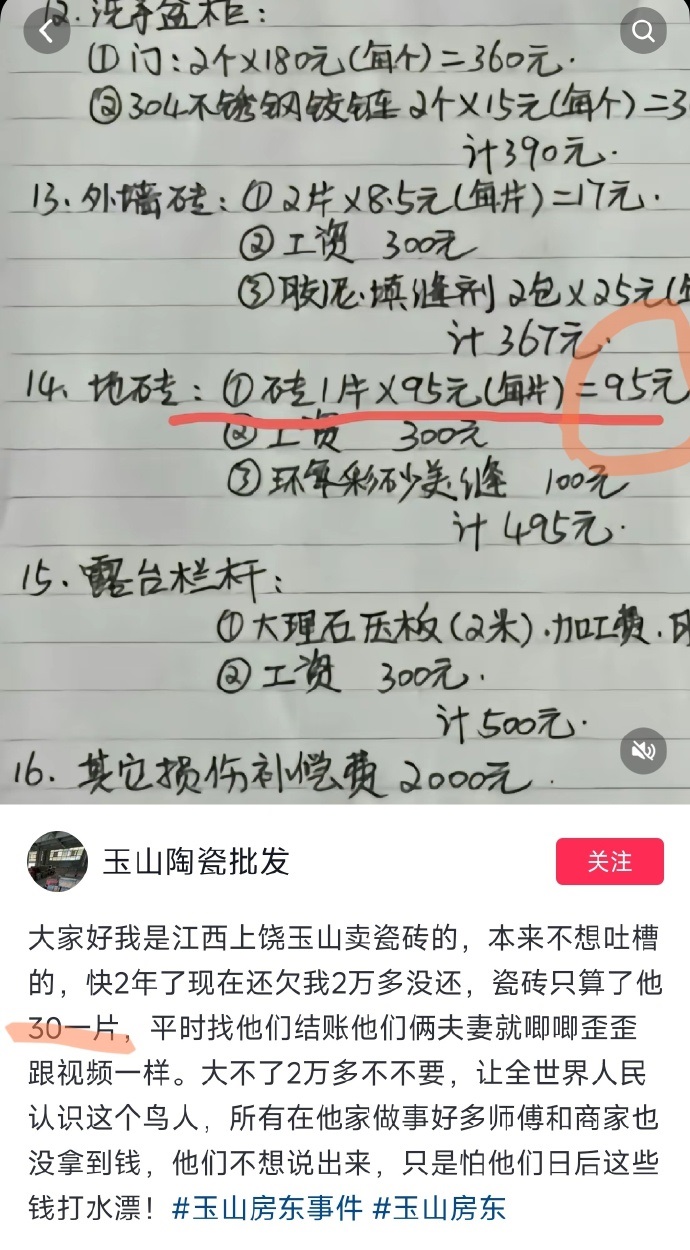 12.洗手盆柜:
①门:2个×180元(每个)=360元.
②304不锈钢铰链 2个×15元(每个)=3
计390元.
13.外墙砖:①2片×8.5元(每片)=17元.
②工资 300元
③胶泥.填缝剂 2包×25元(
计367元.
14.地砖:①砖1片×95元(每片)=95元
②工资 300元
③环氧彩砂美缝 100元
计495元.
15.露台栏杆:
①大理石压板(2米).加工费.
②工资 300元.
计500元.
16.其它损伤补偿费 2000元.
玉山陶瓷批发
关注
大家好我是江西上饶玉山卖瓷砖的，本来不想吐槽
的，快2年了现在还欠我2万多没还，瓷砖只算了他
30一片，平时找他们结账他们俩夫妻就唧唧歪歪
跟视频一样。大不了2万多不不要，让全世界人民
认识这个鸟人，所有在他家做事好多师傅和商家也
没拿到钱，他们不想说出来，只是怕他们日后这些
钱打水漂！#玉山房东事件 #玉山房东